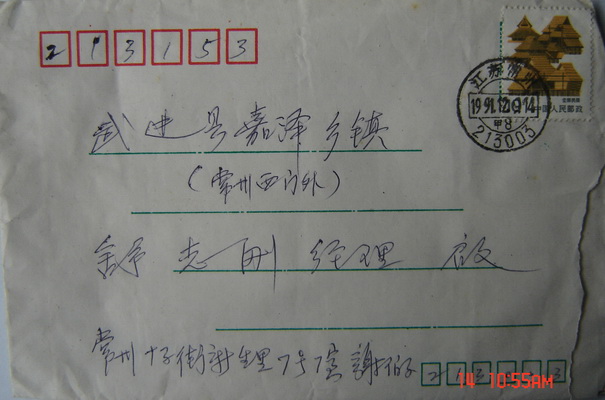 213153
江苏常州
1991.12.09.14
甲8
213003
中国人民邮政
武进县嘉泽乡镇
(常州西门外)
舒志刚 经理 启
常州十子街新生里7号1室 谢伯子
14 10:55AM